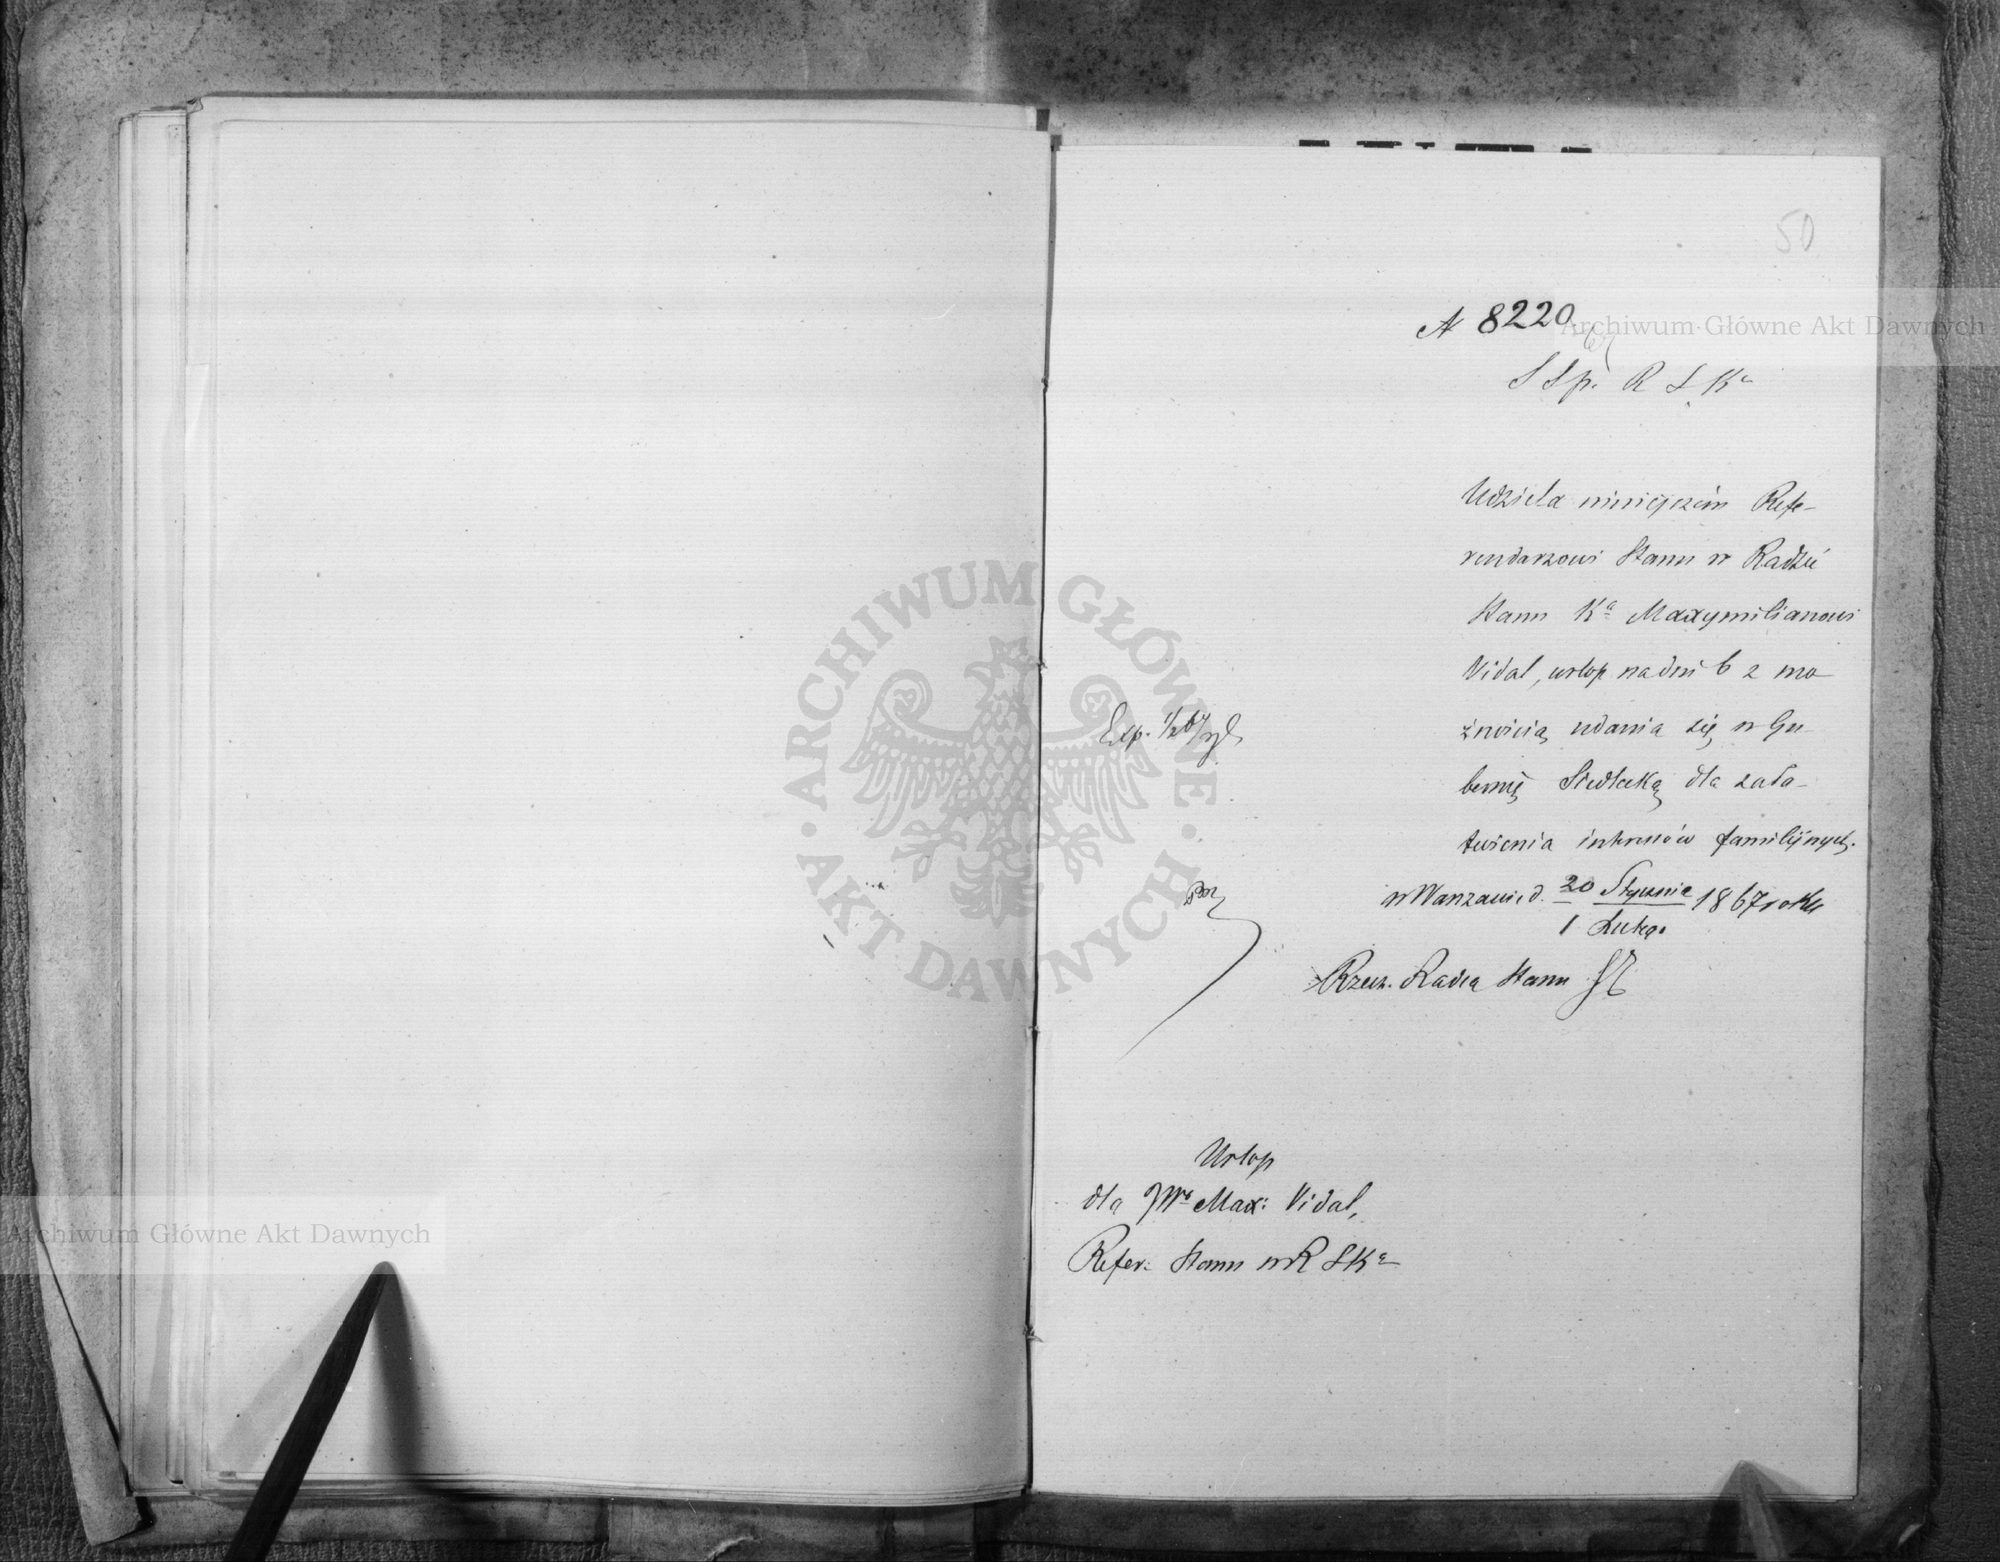 50
N 8220
S Sp. R S Ka
Udziela niniejszém Refe-
rendarzowi Stanu w Radzie
Stanu Ka Maxymilianowi
Vidal, urlop na dni 6 z mo-
żnością udania się w Gu-
bernię Siedlecką dla zała-
twienia interessów familijnych.
w Warszawie d. 20 Stycznia 1867 roku
1 Lutego
Rzecz. Radca Stanu
Exp. 1/2 67
Urlop
dla JWo Max: Vidal,
Refer. Stanu w R S Ka
ARCHIWUM GŁÓWNE
AKT DAWNYCH
Archiwum Główne Akt Dawnych
Archiwum Główne Akt Dawnych